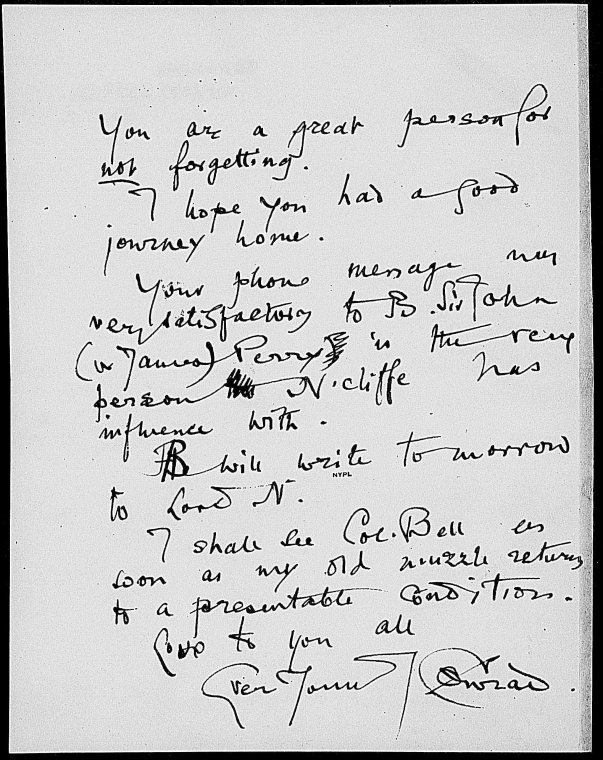 You are a great person for
not forgetting.
I hope you had a good
journey home.
Your phone message was
very satisfactory to B. Sir John
(or James) Perry is the very
person N'cliffe has
influence with.
B will write to-morrow
NYPL
to Lord N.
I shall see Col. Bell as
soon as my old muzzle returns
to a presentable condition.
Love to you all
Ever Yours J Conrad.